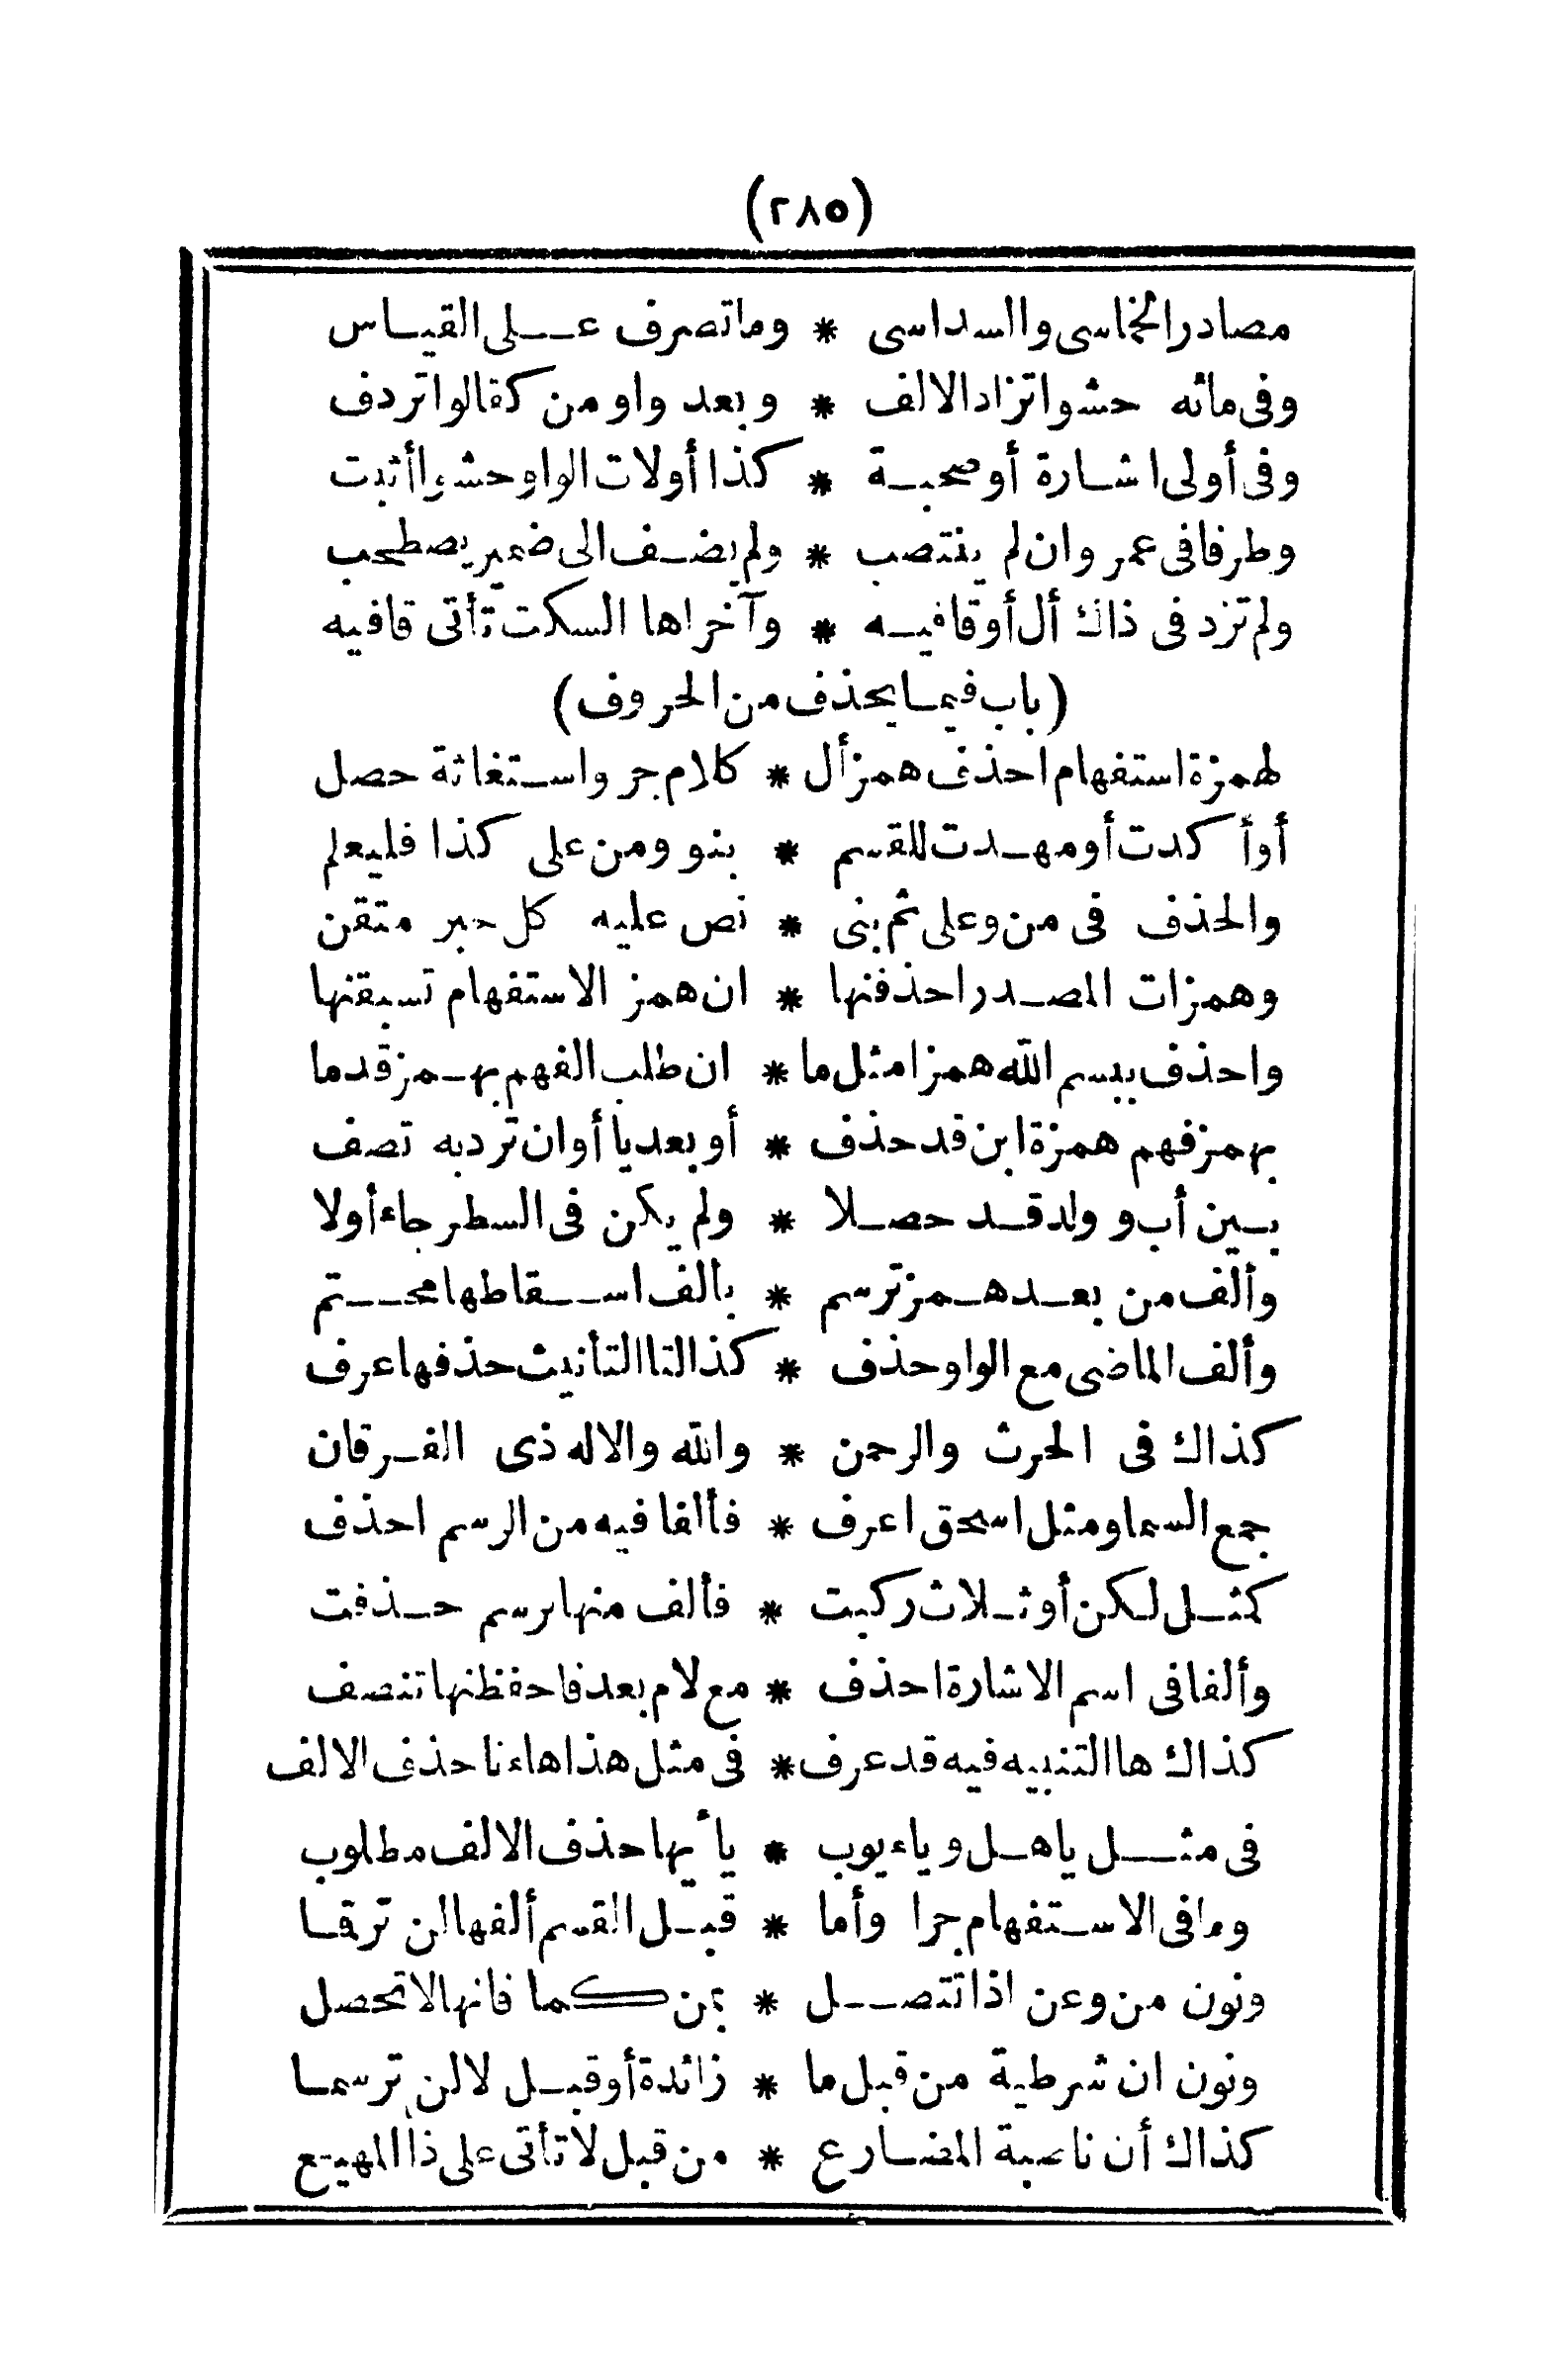 (٢٨٥)
مصادر الخماسى والسداسى * وما تصرف على القياس
وفى مائه حشوا تزاد الالف * وبعد واو من كقالوا تردف
وفى أولى اشارة أو صحبة * كذا أولات الواو حشوا أثبت
وطرفا فى عمر وان لم ينتصب * ولم يضف الى ضمير يصطحب
ولم تزد فى ذاك أل أو قافيه * وآخراها السكت تأتى قافيه
(باب فيما يحذف من الحروف)
لهمزة استفهام احذف همز أل * كلام جر واستغاثة حصل
أو أكدت أو مهدت للقسم * بنو ومن على كذا فليعلم
والحذف فى من وعلى ثم بنى * نص عليه كل حبر متقن
وهمزات المصدر احذفنها * ان همز الاستفهام تسبقنها
واحذف ببسم الله همزا مثل ما * ان طلب الفهم بهمز قدما
بهمز فهم همزة ابن قد حذف * أو بعد يا أو ان ترد به تصف
بين أب و ولد قد حصلا * ولم يكن فى السطر جاء أولا
وألف من بعد همز ترسم * بألف اسقاطها محتم
وألف الماضى مع الواو حذف * كذا لتا التأنيث حذفها عرف
كذاك فى الحرث والرحمن * والله والاله ذى الفرقان
جمع السما ومثل اسحق اعرف * فألفا فيه من الرسم احذف
كمثل لكن أو ثلاث ركبت * فألف منها برسم حذفت
وألفا فى اسم الاشارة احذف * مع لام بعد فاحفظنها تنصف
كذاك ها التنبيه فيه قد عرف * فى مثل هذا هاءنا حذف الالف
فى مثل ياهل وياء يوب * يأيها حذف الالف مطلوب
وما فى الاستفهام جرا وأما * قبل القسم ألفها لن ترقما
ونون من وعن اذا تتصل * بمن كما فانها لا تحصل
ونون ان شرطية من قبل ما * زائدة أو قبل لا لن ترسما
كذاك أن ناصبة المضارع * من قبل لا تأتى على ذا المهيع